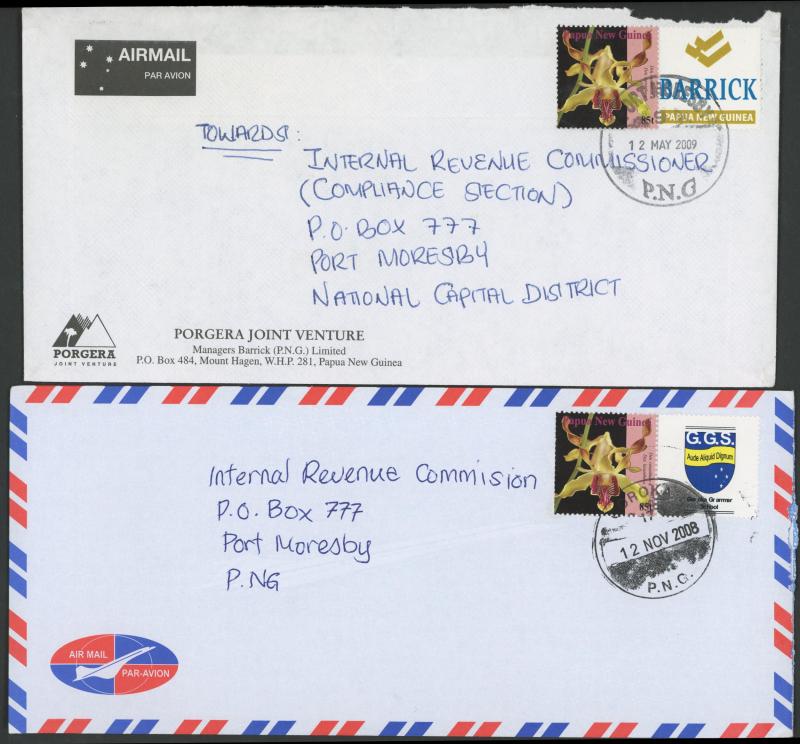 AIRMAIL
PAR AVION
Papua New Guinea
85t
BARRICK
PAPUA NEW GUINEA
12 MAY 2009
P.N.G
TOWARDS:
INTERNAL REVENUE COMMISSIONER
(COMPLIANCE SECTION)
P.O. BOX 777
PORT MORESBY
NATIONAL CAPITAL DISTRICT
PORGERA
JOINT VENTURE
PORGERA JOINT VENTURE
Managers Barrick (P.N.G.) Limited
P.O. Box 484, Mount Hagen, W.H.P. 281, Papua New Guinea
Papua New Guinea
85t
G.G.S.
Aude Aliquid Dignum
Goroka Grammar
School
12 NOV 2008
P.N.G.
Internal Revenue Commision
P.O. Box 777
Port Moresby
P.NG
AIR MAIL
PAR-AVION